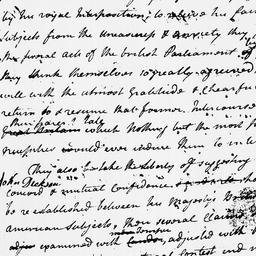 by his royal Interposition; to relieve his fai
subjects from the uneasiness & anxiety they
the several acts of the british Parliament, of
they think themselves so greatly agrieved
will with the utmost Gratitude & Chearfu
return to & resume that former Intercourse
their parent State
Great Britain which Nothing but the most
principles could ever induce them to in
They also take the liberty of suggesting
John Dickson
concord & mutual Confidence
be re established between his Majestys
american Subjects, than several Claims
temper
examined with Candor, adjusted with
contest and